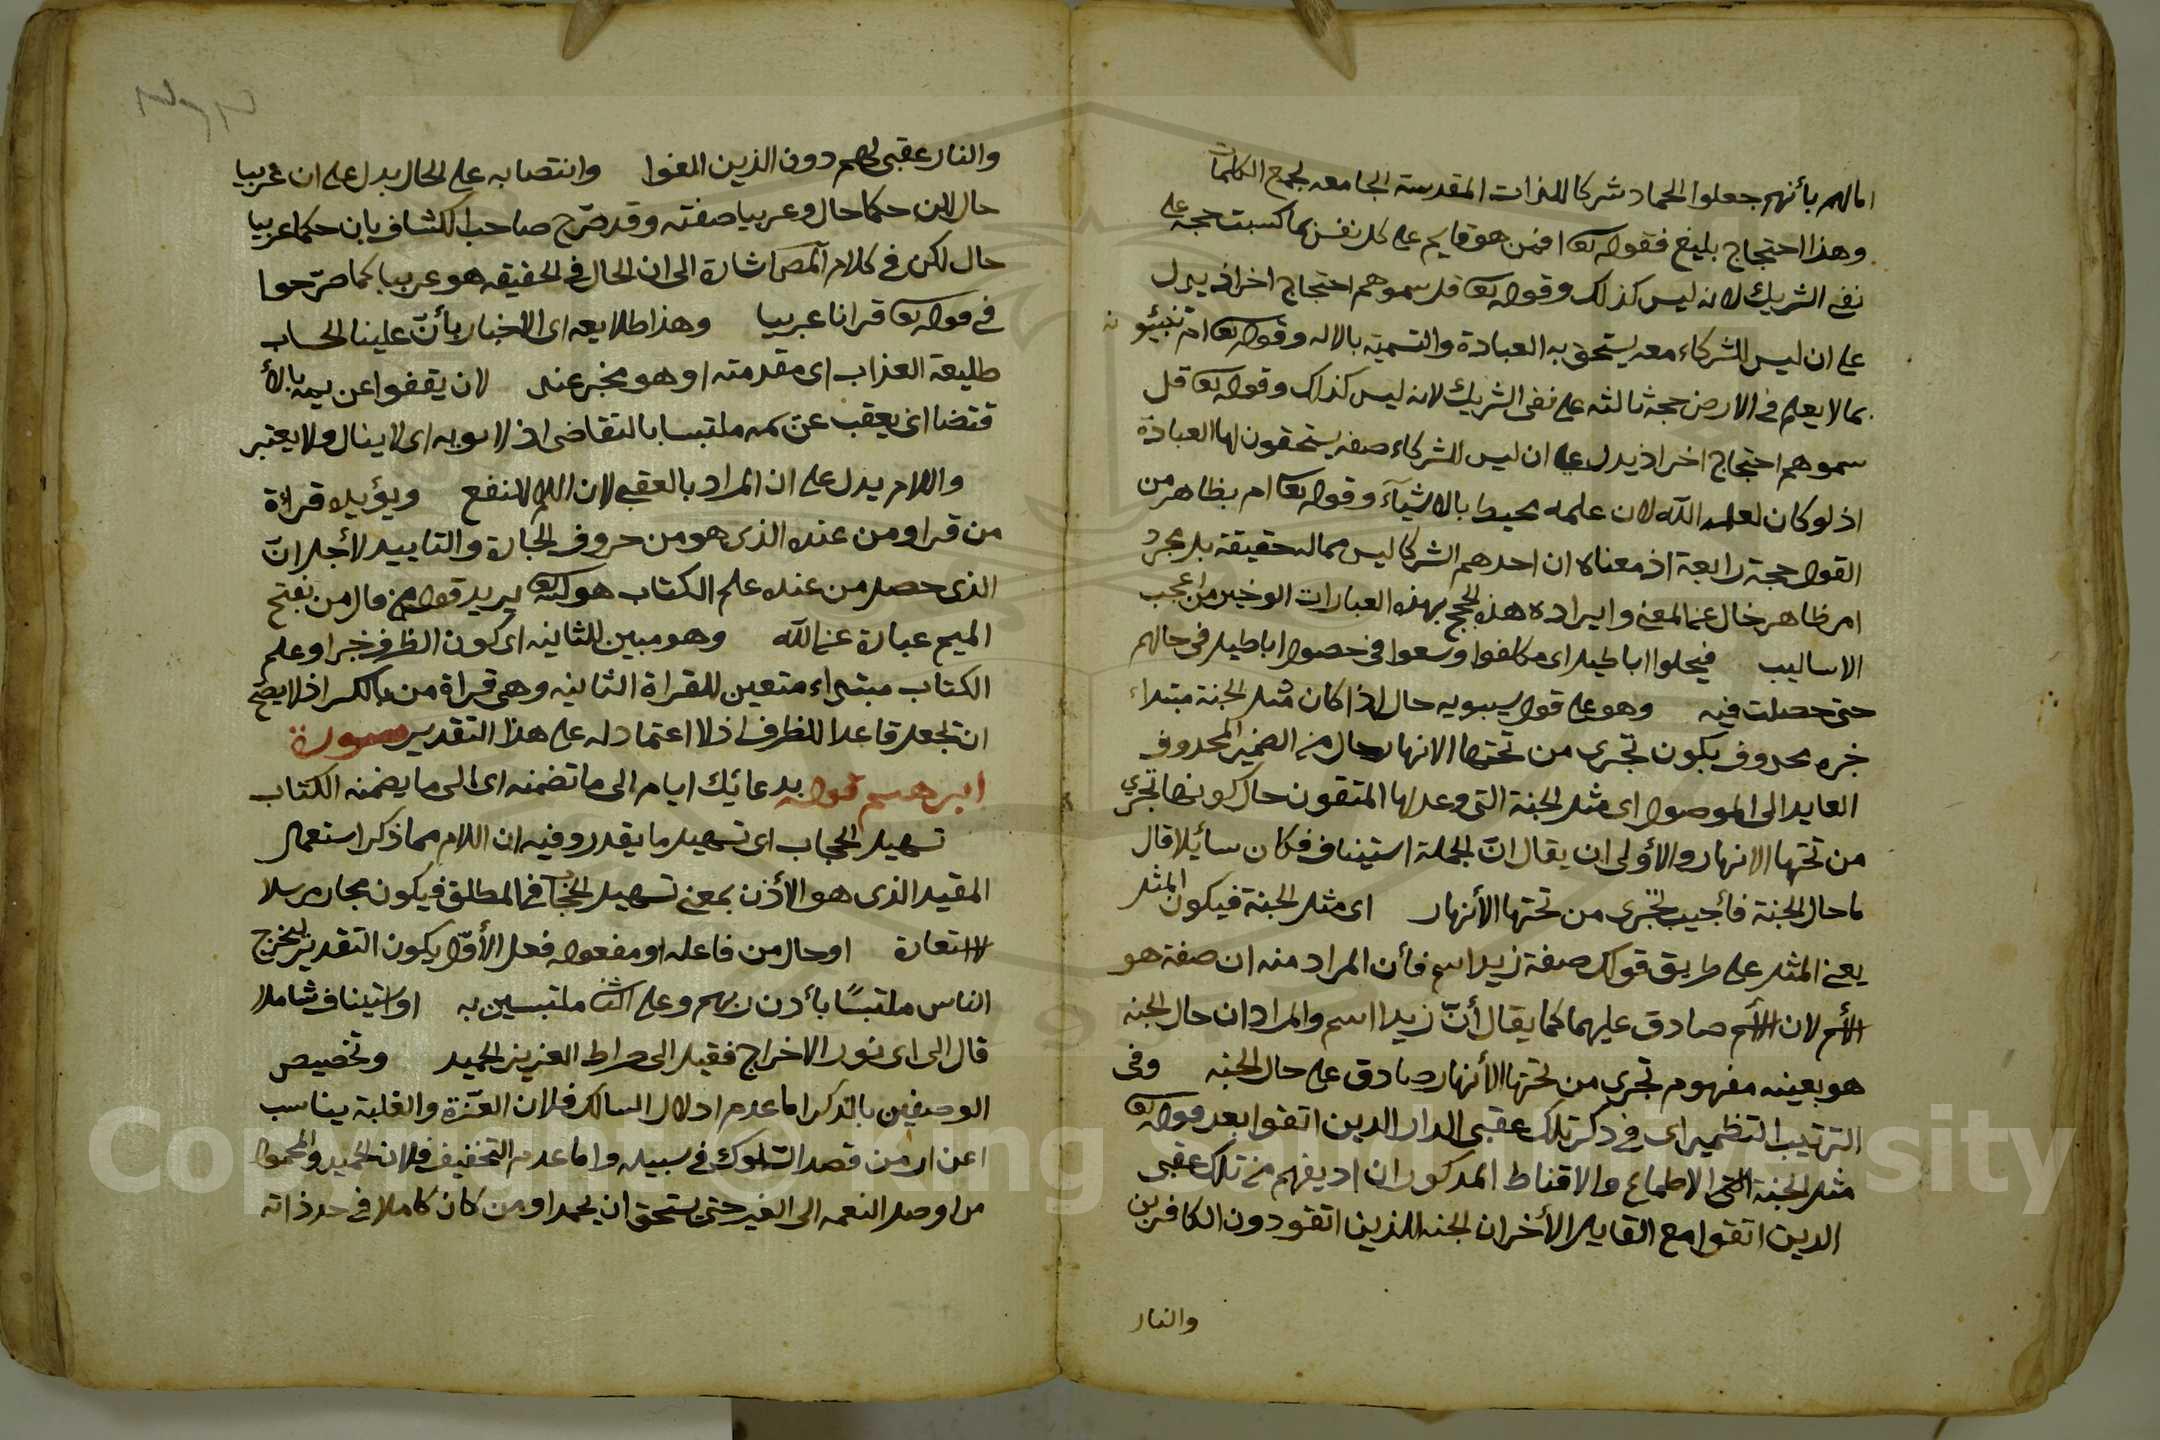 امالهم بأنهم جعلوا الجماد شركا للذات المقدسة الجامعه لجمع الكلمات
وهذا احتجاج بليغ فقوله تعا افمن هو قايم على كل نفس بما كسبت حجة على
نفى الشريك لانه ليس كذلك وقوله تعا قل سموهم احتجاج اخر اذ يدل
على ان ليس للشركاء معه يستحق به العبادة والتسمية بالاله وقوله تعا ام تنبئونه
بما لا يعلم فى الارض حجة ثالثه على نفى الشريك لانه ليس كذاك وقوله تعا قل
سموهم احتجاج اخر اذ يدل على ان ليس للشركاء صفه يستحقون لها العبادة
اذ لو كان لعلمه الله لان علمه محيط بالاشيآء وقوله تعا ام بظاهر من
القول حجة رابعة اذ معناه ان احدهم الشركا ليس مماله حقيقة بل مجرد
امر ظاهر خال عن المعنى وايراده هذه الحجج بهذه العبارات الوخيز من اعجب
الاساليب فيحلوا اباطيل اى مكلفوا وسعوا فى حصول اباطيل فى حالهم
حتى حصلت فيه وهو على قول سيبويه حال اذا كان مثل الجنة مبتداء
خبره محدوف يكون تجرى من تحتها الانهار حال من الضمير المحدوف
العايد الى الموصول اى مثل الجنة التى وعدها المتقون حال كونها تجري
من تحتها الانهار والأولى ان يقال انّ الجملة استيناف فكان سائلا قال
ما حال الجنة فأجيب تجرى من تحتها الأنهار اى مثل الجنة فيكون المثل
يعنى المثل على طريق قولك صفة زيد اسم فأن المراد منه ان صفة هو
الاسم لان الاسم صادق عليهما كما يقال أنّ زيدا اسم والمراد ان حال الجنه
هو بعينه مفهوم تجرى من تحتها الأنهار صادق على حال الجنه وفى
الترتيب التظمير اى فى دكر تلك عقبى الدار الدين اتقوا بعد قوله تعا
مثل الجنة التى الاطماع والاقناط المدكوران اد يفهم من تلك عقبى
الدين اتقوا مع القايل الأخر ان الجنه للذين اتقو دون الكافرين
والنار
والنار عقبى لهم دون الذين القوا وانتصابه على الحال يدل على ان عربيا
حال لان حكما حال وعربيا صفته وقد صرّح صاحب الكشاف بان حكما عربيا
حال لكن فى كلام المص اشارة الى ان الحال فى الحقيقه هو عربيا كما صرّحوا
فى قوله تعا قرانا عربيا وهذا طلايعه اى الاخبار بأنّ علينا الحساب
طليعة العذاب اى مقدمته او هو مخبر عنه لان يقفوا عن يمه بالأ
قتضا اى يعقب عن يمه ملتبسا بالتقاضى اذ لا يوبه اى لا ينال ولا يعتبر
واللام يدل على ان المراد بالعقبى لان اللام للنفع ويؤيده قراءة
من قرا ومن عنده الذى هو من حروف الجارة والتاييد لأجل انّ
الذى حصل من عنده علم الكتاب هو الله يريد قوله من قال من بفتح
الميم عبارة عن الله وهو مبين للثانيه اى كون الظرف خبرا وعلم
الكتاب مبتداء متعين للقراة الثانيه وهى قراة من بالكسر اذ لا يصح
ان تجعل قاعدا للظرف اذ لا اعتماد له على هذا التقدير سورة
ابرهيم قوله بدعائك ايام الى ما تضمنه اى الى ما يضمنه الكتاب
تسهيل الحجاب اى تسهيل ما يقدر وفيه ان اللام مما ذكر استعمال
المقيد الذى هو الأذن بمعنى تسهيل الحجاب فى المطلق فيكون مجاز مرسلا
لا استعارة او حال من فاعله او مفعوله فعلى الأوّل يكون التقدير ليخرج
الناس ملتبسًا بأدن ربهم وعلى الثانى ملتبسين به او استيناف شاملا
قال الى اى نور الاخراج فقيل الى صراط العزيز الحميد وتخصيص
الوصفين بالذكر اما عدم ادلال السالك فلان العزّة والغلبة يناسب
اعزاز من قصد السّلوك فى سبيله واما عدم التخفيف فلان الحميد والمحمول
من اوصل النعمه الى الغير حتى يستحق ان يحمد او من كان كاملا فى حد ذاته
Copyright © King Saud University